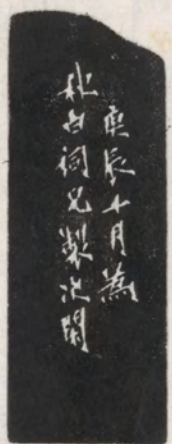 庚辰十月為
秋白詞兄製次閑